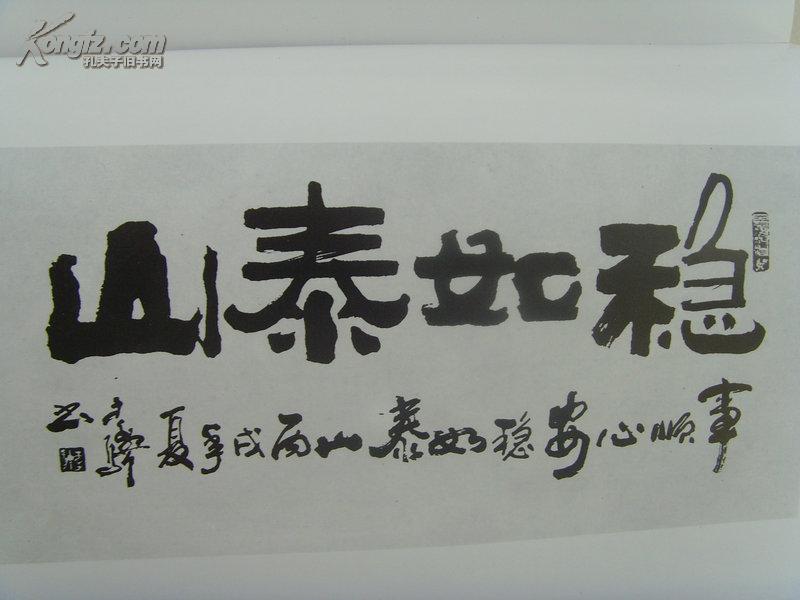 Kongfz.com
孔夫子旧书网
稳如泰山
事顺心安稳如泰山丙戌年夏
书